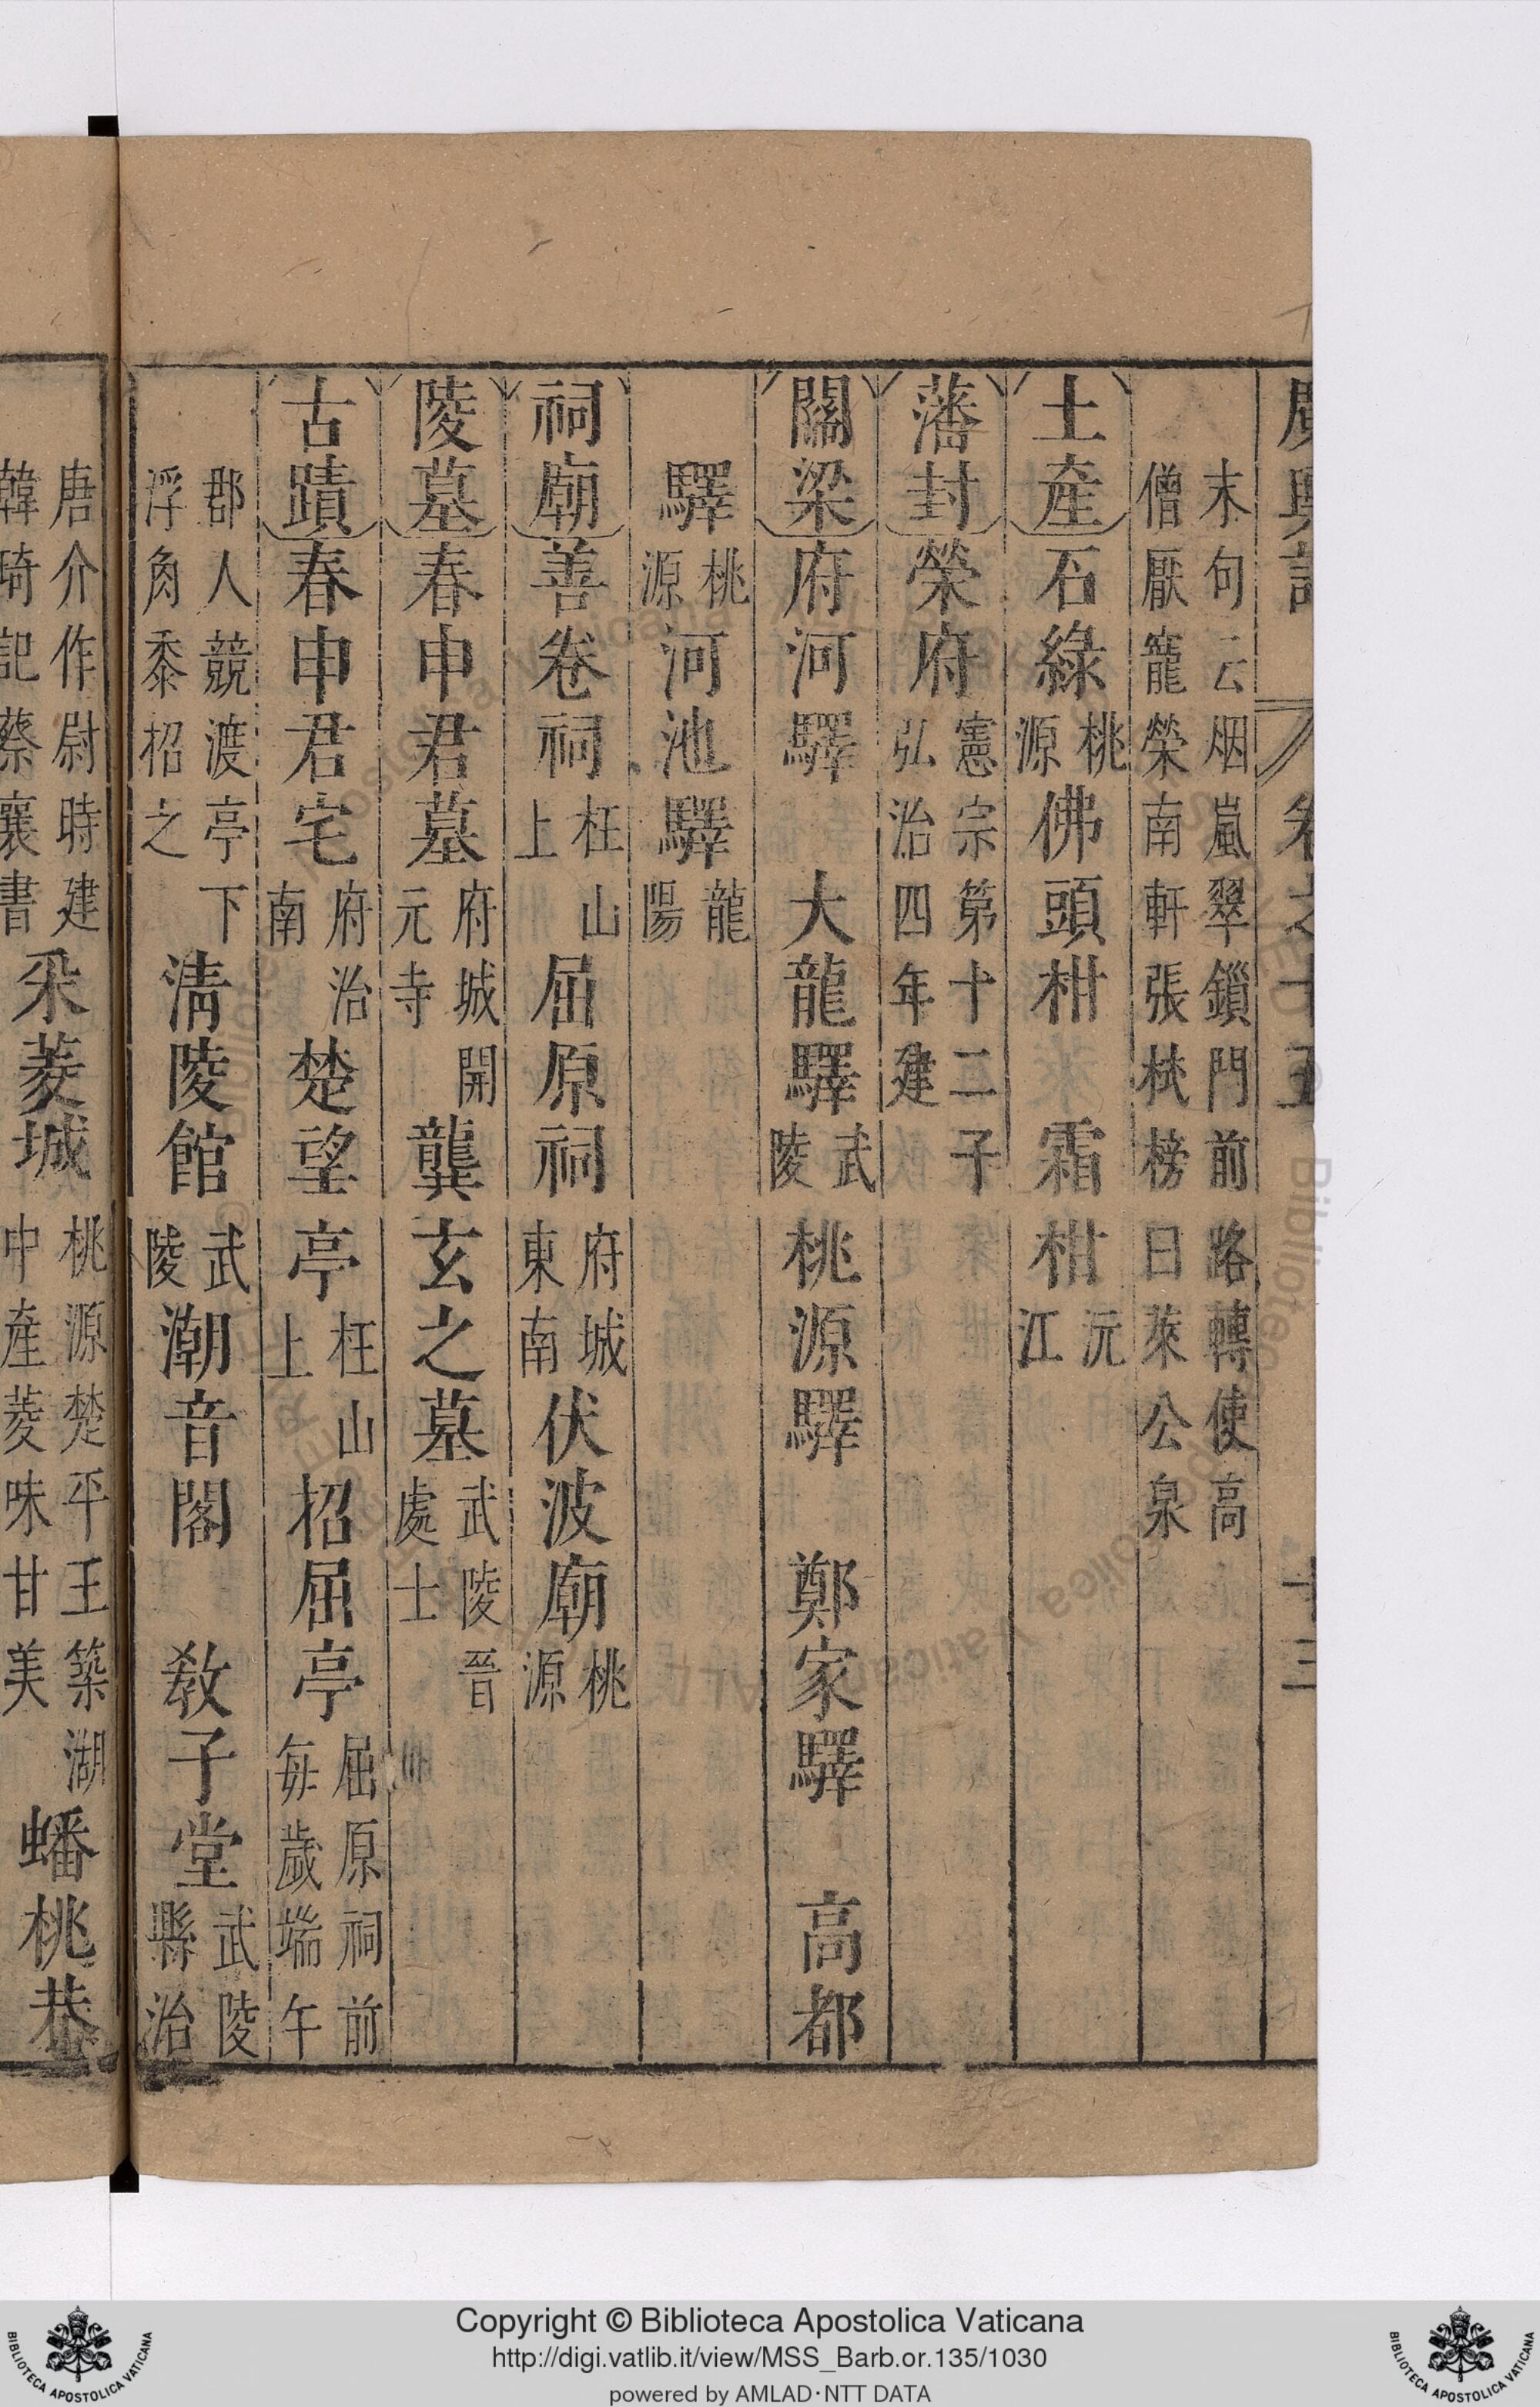 末句云烟嵐翠鎖門前路轉使高
僧厭寵榮南軒張栻榜曰萊公泉
土產石綠桃源佛頭柑霜柑沅江
藩封榮府憲宗第十二子弘治四年建
關梁府河驛大龍驛武陵桃源驛鄭家驛高都
驛桃源河池驛龍陽
祠廟善卷祠枉山上屈原祠府城東南伏波廟桃源
陵墓春申君墓府城開元寺龔玄之墓武陵晉處士
古蹟春申君宅府治南楚望亭枉山上招屈亭屈原祠前每歲端午
郡人競渡亭下浮角黍招之清陵館武陵潮音閣教子堂武陵縣治
唐介作尉時建韓琦記蔡襄書采菱城桃源楚平王築湖中產菱味甘美蟠桃巷
Copyright © Biblioteca Apostolica Vaticana
http://digi.vatlib.it/view/MSS_Barb.or.135/1030
powered by AMLAD·NTT DATA
BIBLIOTECA APOSTOLICA VATICANA
BIBLIOTECA APOSTOLICA VATICANA